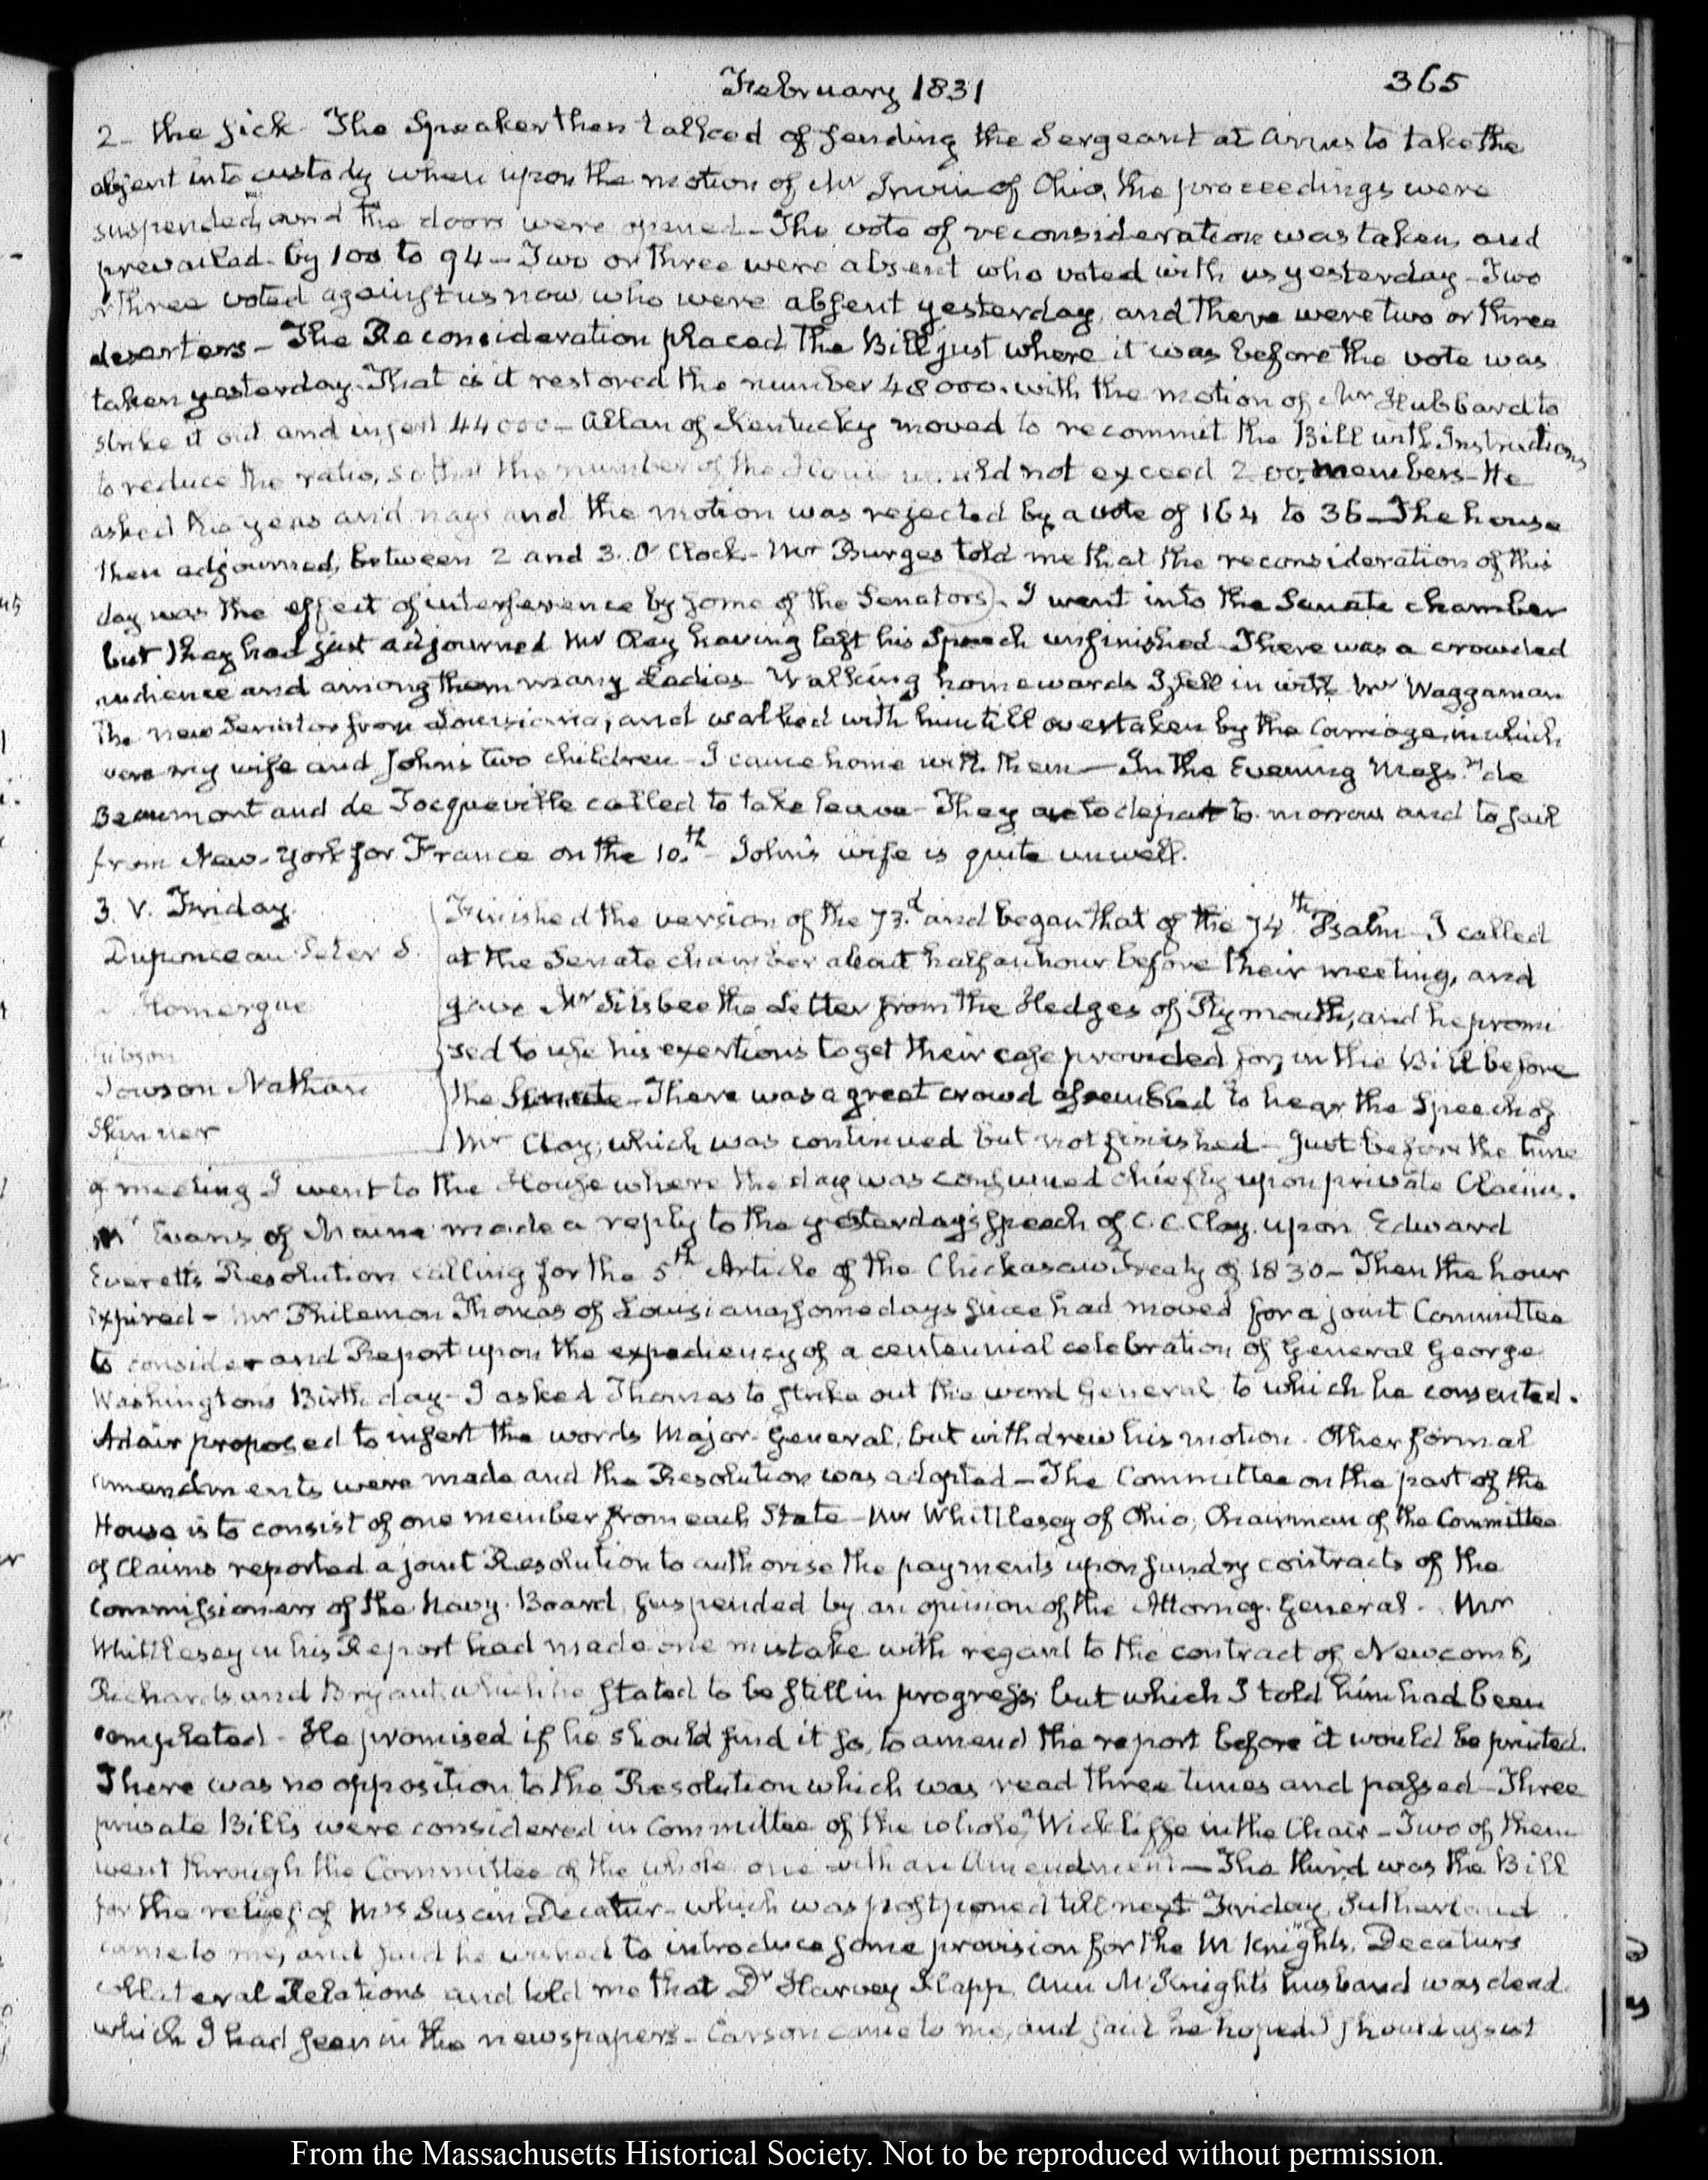 February 1831
365
2- the sick. The Speaker then talked of sending the Sergeant at Arms to take the
absent into custody when upon the motion of Mr Irwin of Ohio, the proceedings were
suspended, and the doors were opened - The vote of reconsideration was taken, and
prevailed by 100 to 94 - Two or three were absent who voted with us yesterday - Two
or three voted against us now, who were absent yesterday, and there were two or three
deserters - The Reconsideration placed the Bill just where it was before the vote was
taken yesterday. That is it restored the number 48000. with the motion of Mr Hubbard to
strike it out and insert 44000 - Allan of Kentucky moved to recommit the Bill with Instructions
to reduce the ratio, so that the number of the House would not exceed 200 members - He
asked the yeas and nays and the motion was rejected by a vote of 164 to 36 - The house
then adjourned, between 2 and 3. O'Clock - Mr Burges told me that the reconsideration of this
day was the effect of interference by some of the Senators). I went into the Senate chamber
but they had just adjourned Mr Clay having left his Speech unfinished - There was a crowded
audience and among them many Ladies - Walking homewards I fell in with Mr Waggaman
the new Senator from Louisiana, and walked with him till overtaken by the Carriage, in which
were my wife and John's two children - I came home with them - In the Evening Mess.rs de
Beaumont and de Tocqueville called to take leave - They are to depart to-morrow and to sail
from New-York for France on the 10.th - John's wife is quite unwell.
3. V. Friday.
Duponceau Peter S.
Homergue
Gibson
Towson Nathan
Skinner
Finished the version of the 73.d and began that of the 74.th Psalm - I called
at the Senate chamber about half an hour before their meeting, and
gave Mr Silsbee the Letter from the Hedges of Plymouth, and he promi
sed to use his exertions to get their case provided for, in the Bill before
the Senate - There was a great crowd assembled to hear the Speech of
Mr Clay, which was continued but not finished - Just before the time
of meeting I went to the House where the day was consumed chiefly upon private Claims.
Mr Evans of Maine made a reply to the yesterday's Speech of C. C. Clay, upon Edward
Everett's Resolution calling for the 5th Article of the Chickasaw Treaty of 1830 - Then the hour
expired - Mr Philemon Thomas of Louisiana, some days since had moved for a joint Committee
to consider and Report upon the expediency of a centennial celebration of General George
Washington's Birth day - I asked Thomas to strike out the word General to which he consented.
Adair proposed to insert the words Major-General, but withdrew his motion. Other formal
amendments were made and the Resolution was adopted - The Committee on the part of the
House is to consist of one member from each State - Mr Whittlesey of Ohio, Chairman of the Committee
of Claims reported a joint Resolution to authorise the payments upon sundry contracts of the
Commissioners of the Navy-Board, suspended by an opinion of the Attorney-General - Mr
Whittlesey in his Report had made one mistake with regard to the contract of Newcomb,
Richards and Bryant, which he stated to be still in progress, but which I told him had been
completed - He promised if he should find it so, to amend the report before it would be printed.
There was no opposition to the Resolution which was read three times and passed - Three
private Bills were considered in Committee of the whole, Wickliffe in the Chair - Two of them
went through the Committee of the whole one with an Amendment - The third was the Bill
for the relief of Mrs Susan Decatur - which was postponed till next Friday. Sutherland
came to me, and said he wished to introduce some provision for the McKnights, Decatur's
collateral Relations and told me that Dr Harvey Klapp, Ann McKnight's husband was dead
which I had seen in the newspapers - Carson came to me, and said he hoped I should assist
From the Massachusetts Historical Society. Not to be reproduced without permission.